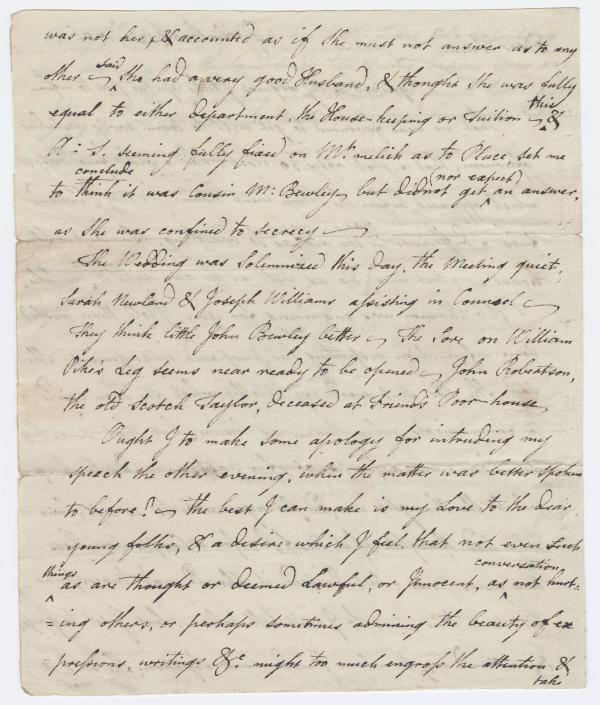 was not her, & accounted as if she must not answer as to any
other said she had a very good Husband, & thought she was fully
equal to either department, the House-keeping or Tuition this &
A: S. seeming fully fixed on Mr. melich as to Place, set me
conclude
to think it was Cousin M: Bewley, but did not (nor expect) get an answer,
as she was confined to secrecy
The Wedding was Solemnized this day, the Meeting quiet,
Sarah Newland & Joseph Williams assisting in Counsel
They think little John Bewley better The Sore on William
Pike's Leg seems near ready to be opened John Robertson,
the old Scotch Taylor, deceased at Friends Poor-house
Ought I to make some apology for intruding my
speech the other evening, when the matter was better spoken
to before? the best I can make is my Love to the dear
young folks, & a desire which I feel, that not even such
things as are thought or deemed Lawful, or Innocent, conversation as not hurt=
=ing others, or perhaps sometimes admiring the beauty of ex
pressions, writings &c. might too much engross the attention &
take